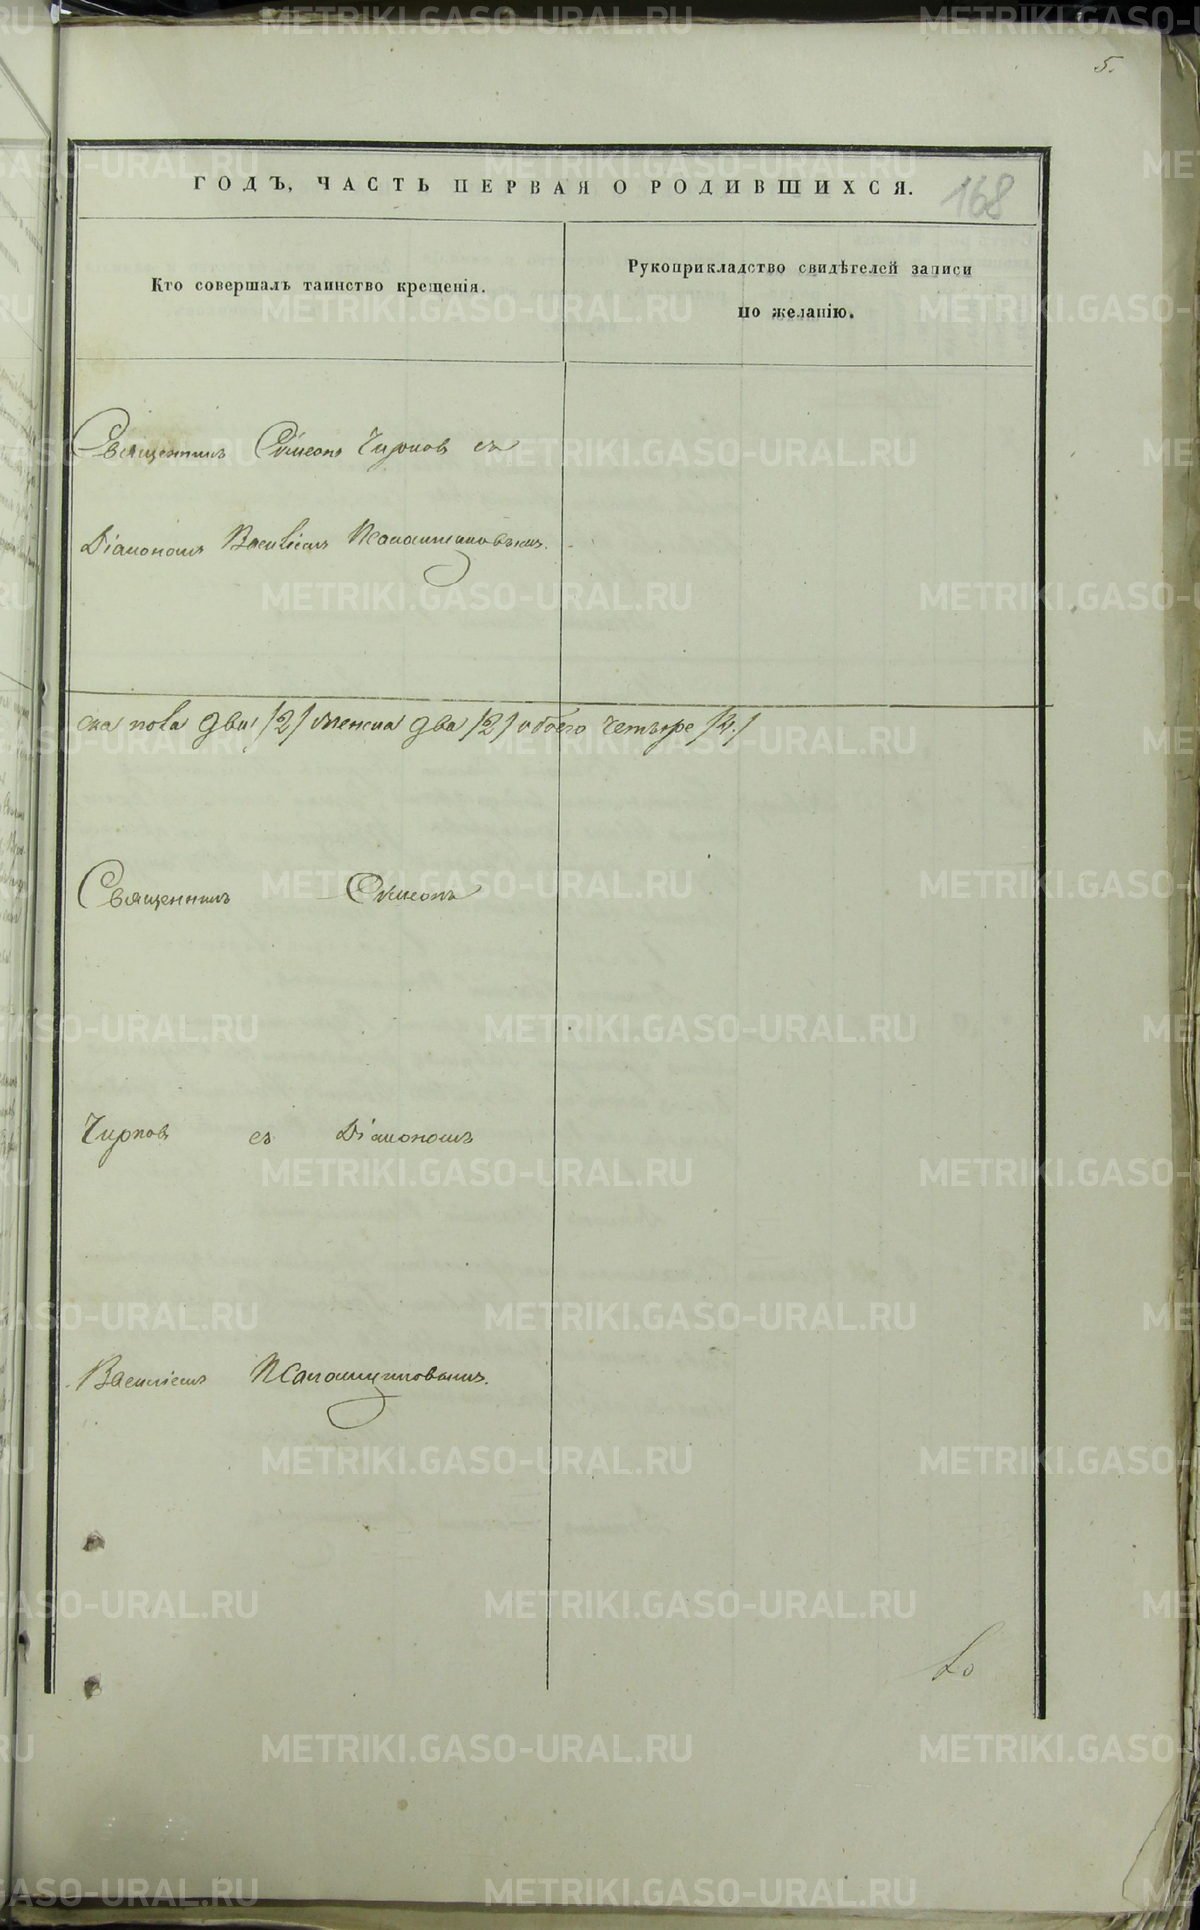 5.
ГОДЪ, ЧАСТЬ ПЕРВАЯ О РОДИВШИХСЯ.
168
Кто совершалъ таинство крещенія.
Рукоприкладство свидѣтелей записи
по желанію.
Священникъ Симеонъ Чирковъ съ
Діакономъ Василіемъ
ска пола два /2/ женска два /2/ обоего четыре /4./
Священникъ Симеонъ
Чирковъ съ Діакономъ
Василіемъ
METRIKI.GASO-URAL.RU